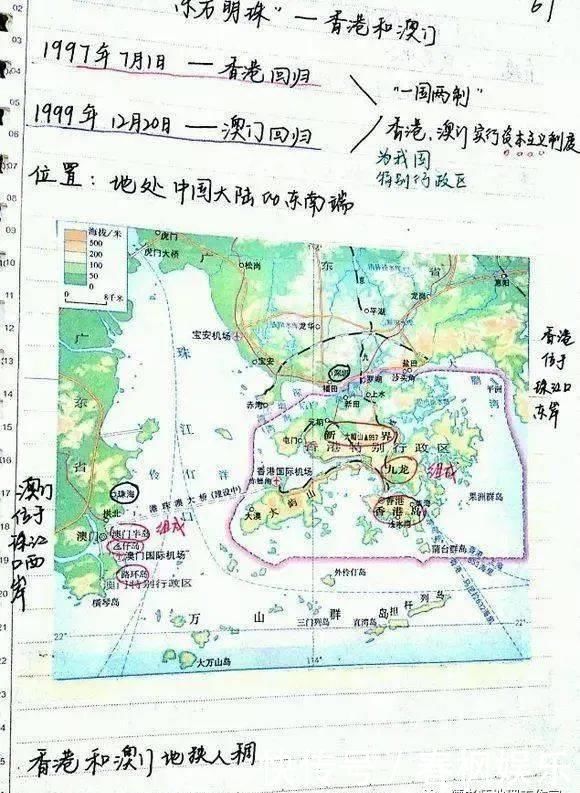 "东方明珠"——香港和澳门
61
1997年7月1日——香港回归
"一国两制"
1999年12月20日——澳门回归
香港、澳门实行资本主义制度
为我国
特别行政区
位置：地处中国大陆的东南端
海拔/米
500
200
100
50
0
8千米
虎门
虎门大桥
松岗
114°
东
省
惠阳
龙岗
平湖
龙华
宝安机场
广
珠
宝安
深圳
盐田
沙头角
罗湖
福田
上水
新田
赤湾
元朗
平洲
大鹏湾
东
江
屯门
新界
大帽山▲957
香港特别行政区
九龙
组成
省
伶仃洋
香港国际机场
港珠澳大桥(建设中)
大澳
大屿山
香港
香港岛
浅水湾
果洲群岛
蒲台群岛
珠海
拱北
澳门
澳门半岛
氹仔岛
组成
澳门国际机场
路环岛
澳门特别行政区
横琴岛
外伶仃岛
万山群岛
担杆列岛
三门列岛
直湾岛
大万山岛
22°
22°
114°
香港
位于
珠江口
东岸
澳门
位于
珠江
口西
岸
香港和澳门地狭人稠